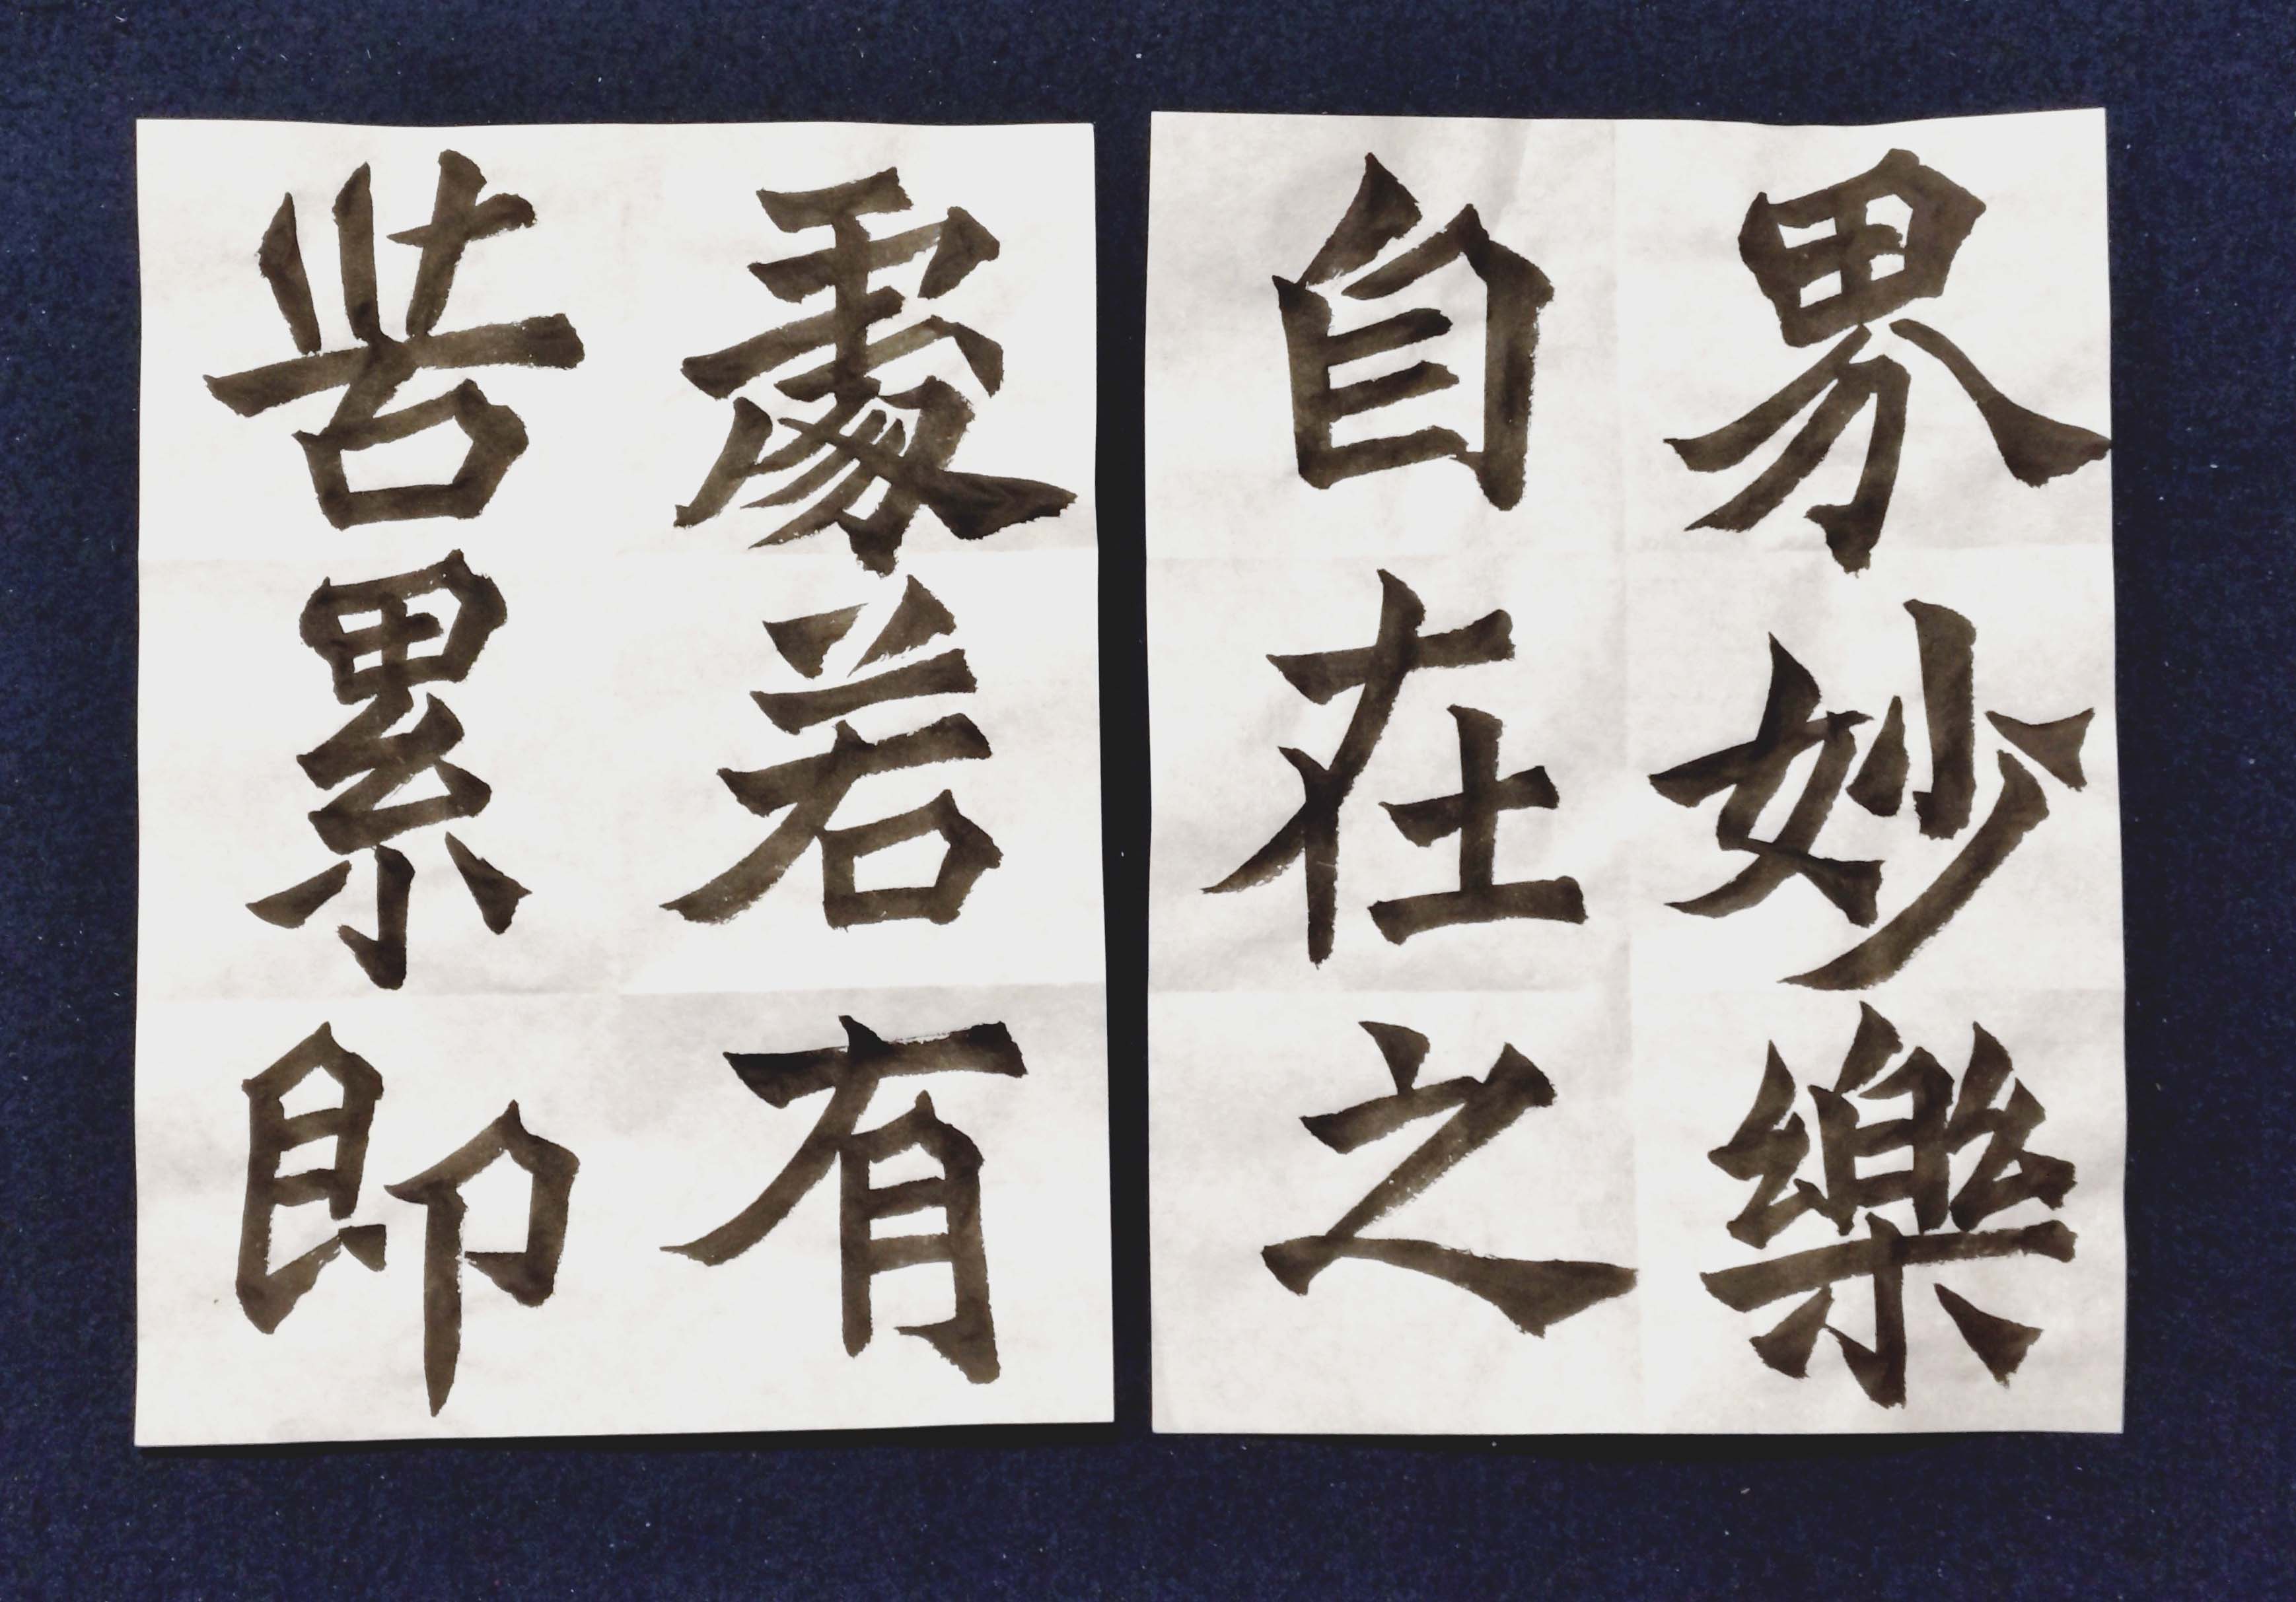 界妙樂
自在之
處若有
苦累即